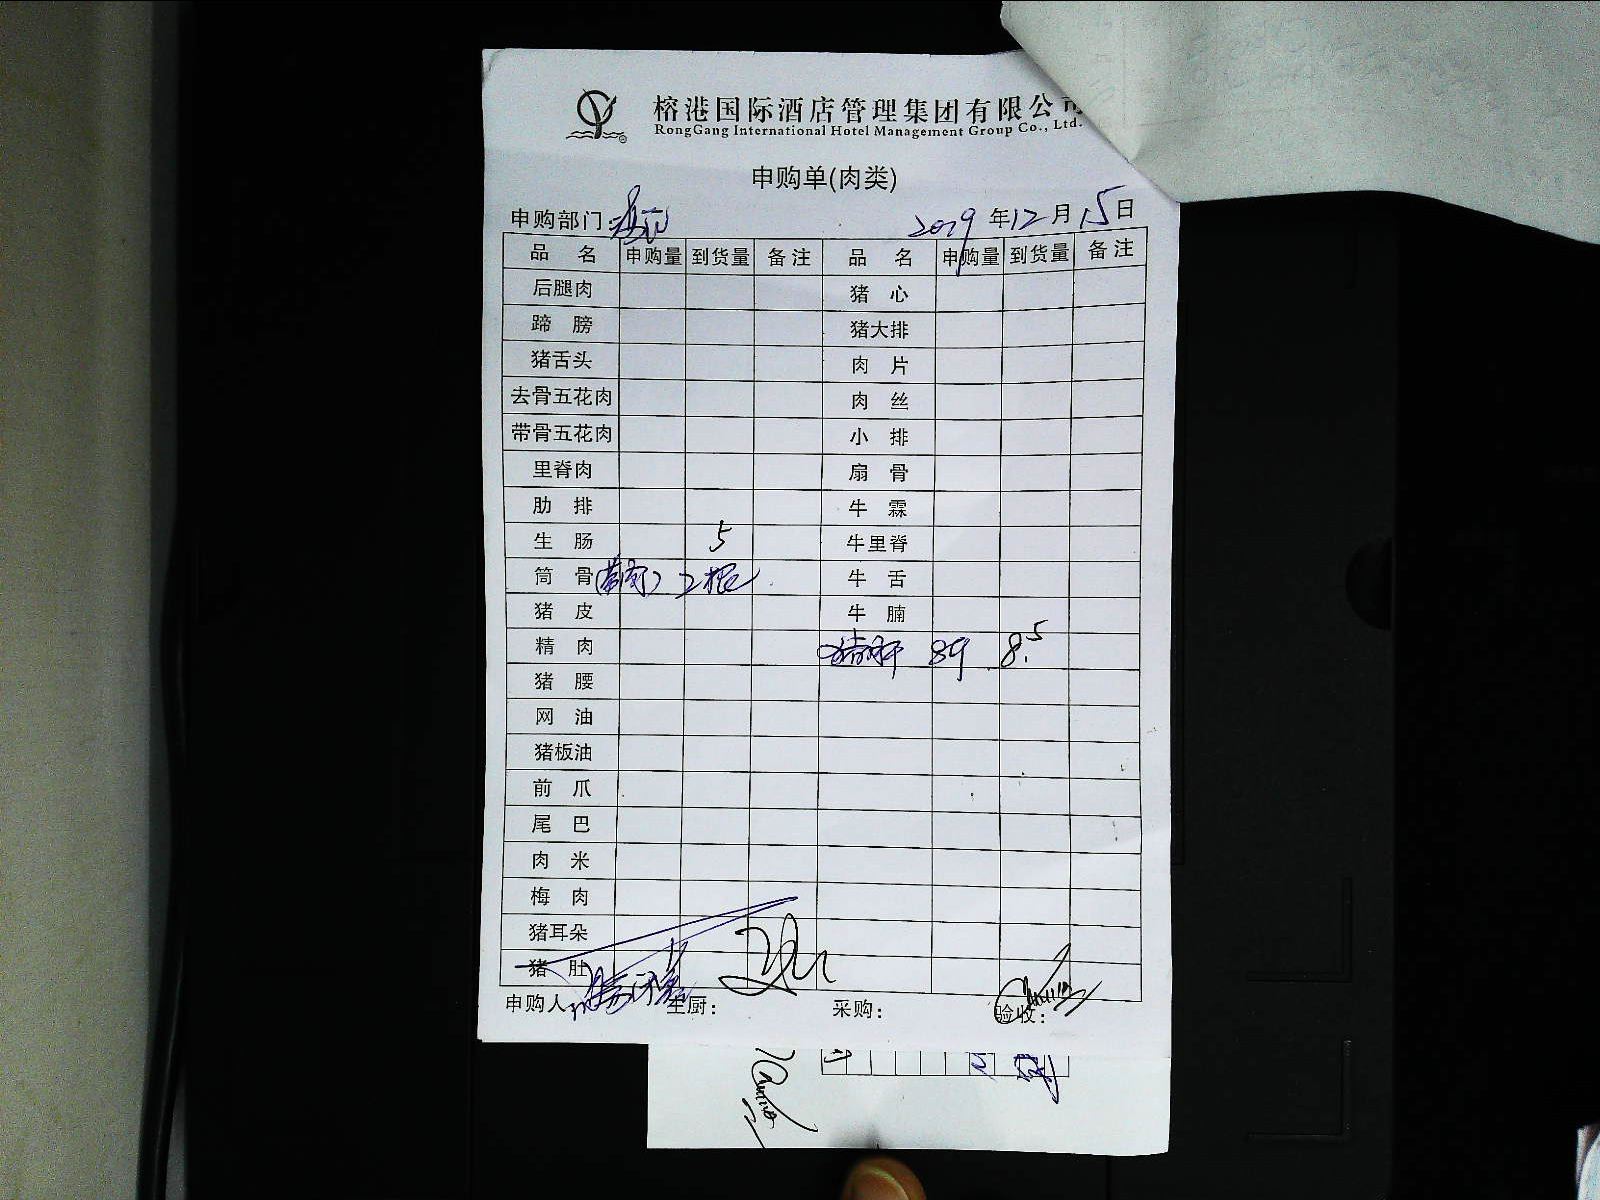 榕港国际酒店管理集团有限公司
RongGang International Hotel Management Group Co., Ltd.
申购单(肉类)
申购部门: 2019年12月15日
品 名 申购量 到货量 备注 品 名 申购量 到货量 备注
后腿肉 猪 心
蹄 膀 猪大排
猪舌头 肉 片
去骨五花肉 肉 丝
带骨五花肉 小 排
里脊肉 扇 骨
肋 排 牛 霖
生 肠 5 牛里脊
筒 骨(带肉) 2根 牛 舌
猪 皮 牛 腩
精 肉 猪肝 89 8.5
猪 腰
网 油
猪板油
前 爪
尾 巴
肉 米
梅 肉
猪耳朵
猪 肚
申购人: 主厨: 采购: 验收: